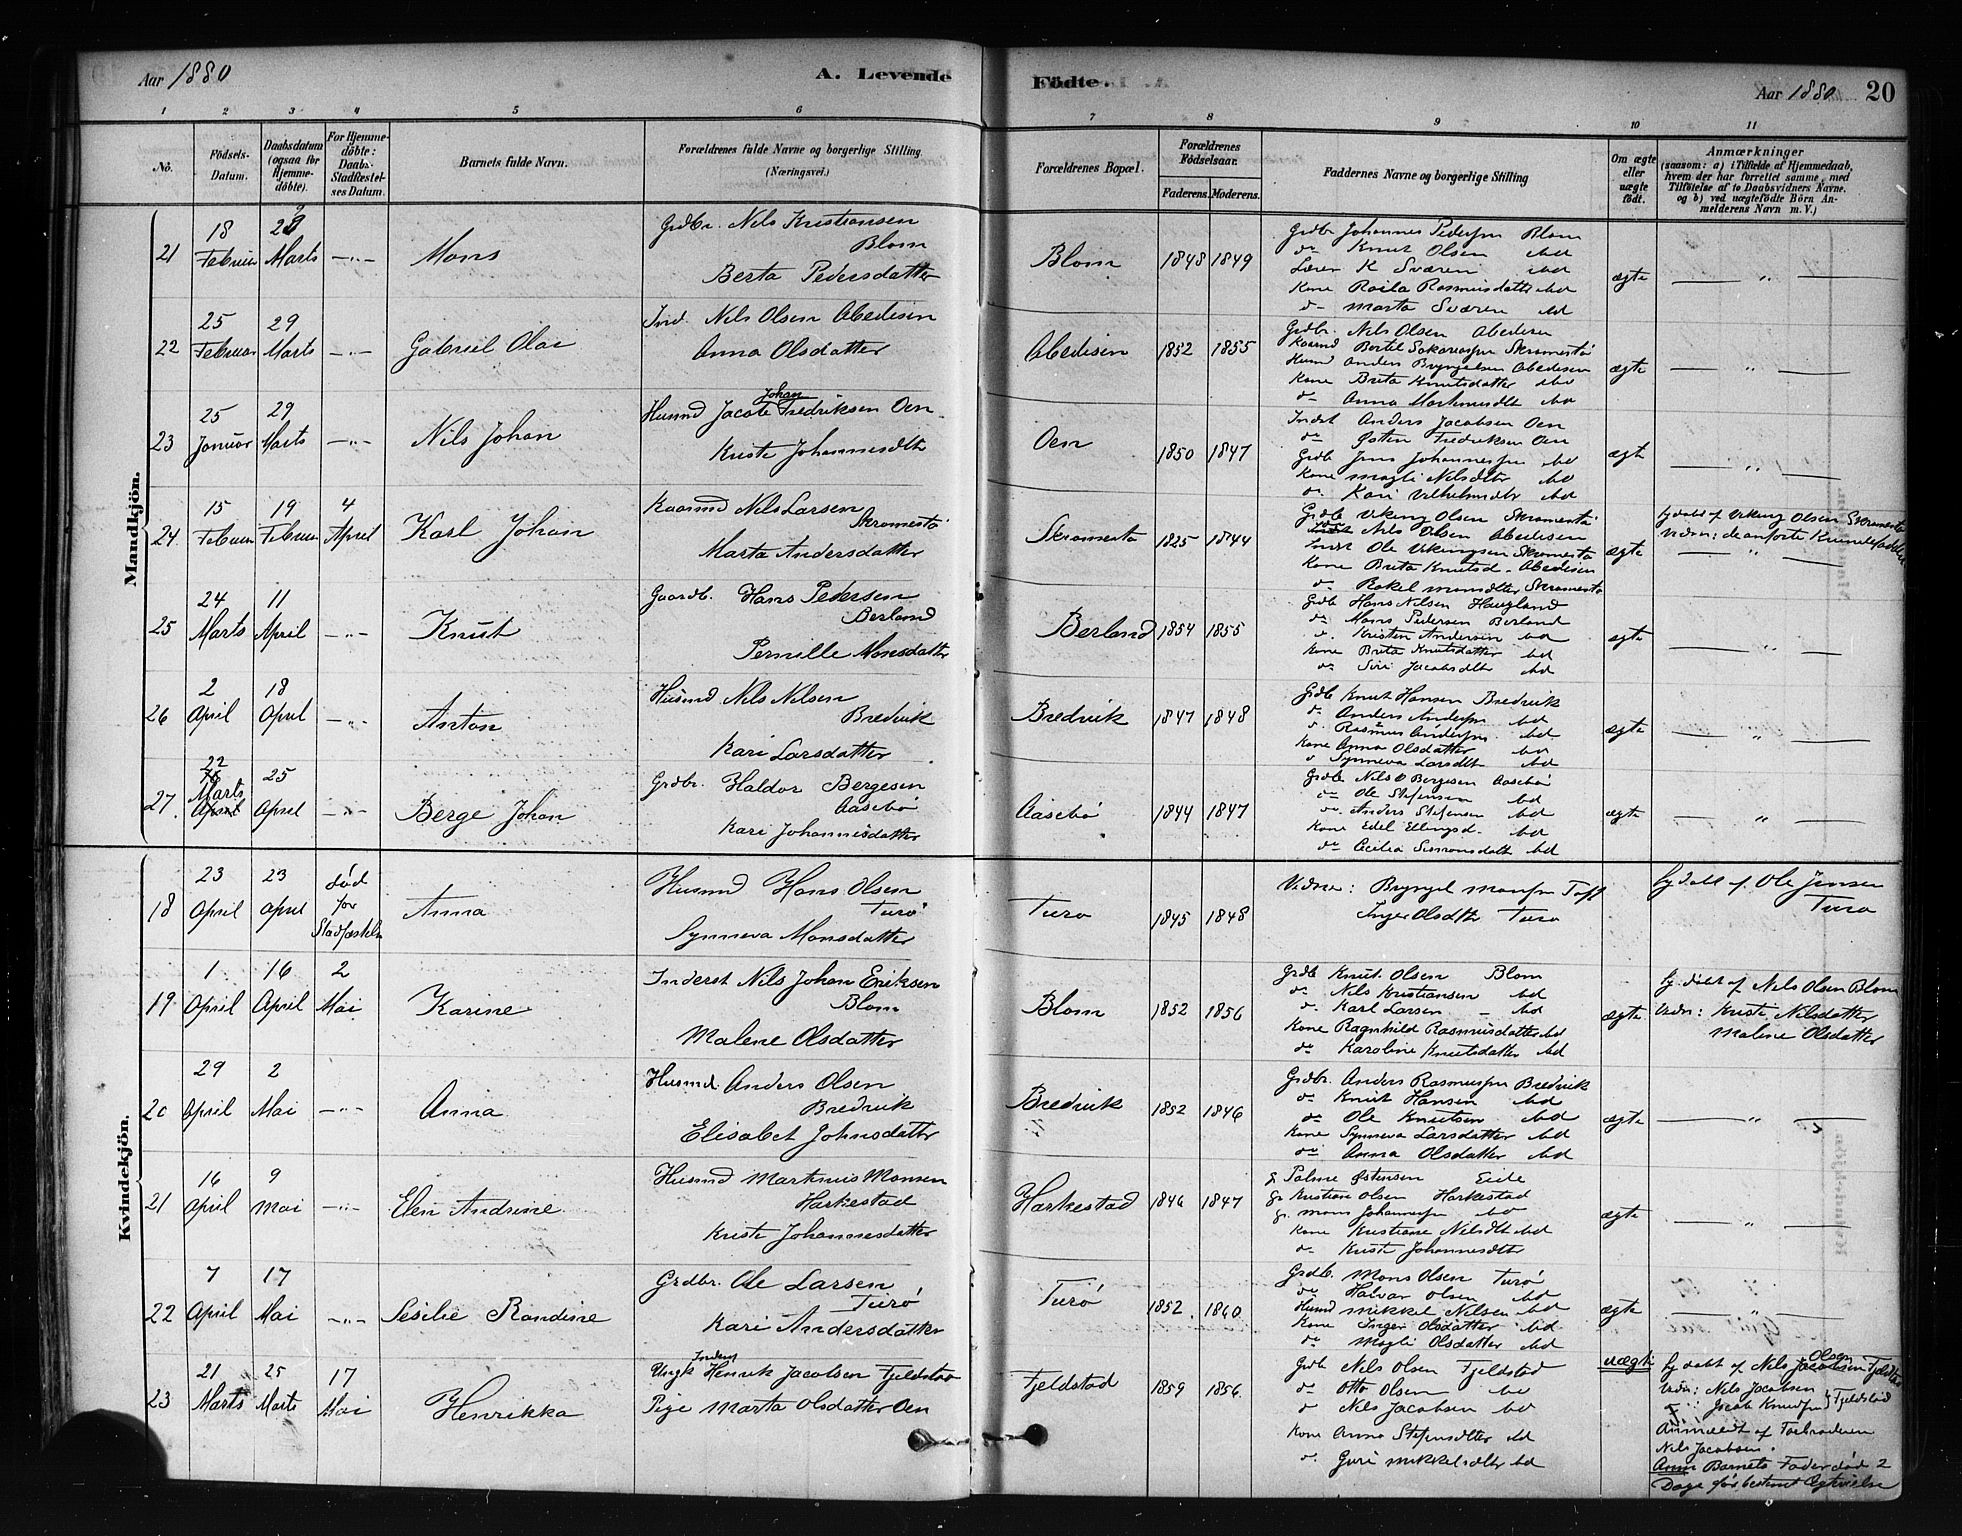 Aar 1880
A. Levende
Födte.
Aar 1880
20
1 2 3 4 5 6 7 8 9 10 11
No.
Födsels-Datum.
Daabsdatum (ogsaa for Hjemme-döbte).
For Hjemme-döbte: Daabs-Stadfæstel-ses Datum.
Barnets fulde Navn.
Forældrenes fulde Navne og borgerlige Stilling. (Næringsvei.)
Forældrenes Bopæl.
Forældrenes Födselsaar. Faderens. Moderens.
Faddernes Navne og borgerlige Stilling
Om ægte eller uægte födt.
Anmærkninger
(saasom: a) i Tilfælde af Hjemmedaab,
hvem der har forrettet samme, med
Tilföielse af to Daabsvidners Navne,
og b) ved uægtefödte Börn An-
melderens Navn m. V.)
Mandkjön.
21 18 Februar Marts -"- Mons
Grdbr. Nils Kristiansen
Blom
Berta Pedersdatter
Blom 1848 1849
Grdbr Johannes Pedersen Blom
do Knut Olsen ibd
Lærer K Sværen ibd
Kone Rasmusdatter ibd
do Marta Sværen ibd
ægte "
22 25 Februar 29 Marts -"- Gabriel Olai
Ind. Nils Olsen Abedisen
Anna Olsdatter
Abedisen 1852 1855
Grdbr. Nils Olsen Abedisen
Bertel Skromestø
Husmd Anders Bryngelsen Abedisen
Kone Brita Knutsdatter ibd
do Anna ibd
ægte "
23 25 Januar 29 Marts -"- Nils Johan
Johan
Husmd Jacob Fredriksen Oen
Kriste Johannesdtr
Oen 1850 1847
Indst Anders Jacobsen Oen
do Østen Fredriksen Oen
Grdb Jens Johannessen ibd
Kone Magli Nilsdtr ibd
do Kari ibd
ægte "
24 15 Februar 19 Februar 4 April Karl Johan
Nils Larsen
Skromestø
Marta Andersdatter
Skromestø 1825 1844
Grdb Viking Olsen Skromestø
Nils Olsen Abedisen
Indst Ole Vikingsen Skromestø
Kone Brita Knutsd. Abedisen
do Rakel Monsdtr Skromestø
ægte
hj.døbt af Viking Olsen Skromestø
Vidner: de anførte
"
25 24 Marts 11 April -"- Knut
Gaardb. Hans Pedersen
Berland
Pernille Monsdatter
Berland 1854 1855
Grdb Hans Nilsen Haugland
do Mons Pedersen Berland
do Kristen Andersen ibd
Kone Brita Knutsdatter ibd
do Siri Jacobsdtr ibd
ægte "
26 2 April 18 April -"- Anton
Husmd Nils Nilsen
Bredvik
Kari Larsdatter
Bredvik 1847 1848
Grdb Knut Hansen Bredvik
do Anders Andersen ibd
do Rasmus Andersen ibd
Kone Anna Olsdatter ibd
do Synneva Larsdtr ibd
ægte "
27. 22 Marts April 25 April -"- Berge Johan
Grdbr. Haldor Bergesen
Aasebø
Kari Johannesdatter
Aasebø 1844 1847
Grdb Nils Bergesen Aasebø
do Ole Stefensen ibd
do Anders Stefensen ibd
Kone Edel Ellingsd. ibd
do Cecilia Simonsdatt ibd
ægte "
Kvindekjön.
18 23 April 23 April død for Stadfæstelse Anna
Husmd Hans Olsen
Turø
Synneva Monsdatter
Turø 1845 1848
Vidner: Bryngel Monsen Toft
Inger Olsdtr Turø
hj.døbt af Ole Jensen
Turø
19 1 April 16 April 2 Mai Karine
Inderst Nils Johan Eriksen
Blom
Malene Olsdatter
Blom 1852 1856
Grdb Knut Olsen Blom
do Nils Kristiansen ibd
do Karl Larsen ibd
Kone Ragnhild Rasmusdatter ibd
do Karoline Knutsdatter ibd
ægte
hj.døbt af Nils Olsen Blom
Vidn: Kriste Nilsdatter
Malene Olsdatter
20 29 April 2 Mai -"- Anna
Husmd. Anders Olsen
Bredvik
Elisabet Johnsdatter
Bredvik 1852 1846
Grdbr. Anders Rasmussen Bredvik
do Knut Hansen ibd
do Ole Knutsen ibd
Kone Synneva Larsdatter ibd
do Anna Olsdatter ibd
ægte "
21 16 April 9 Mai -"- Elen Andrine
Husmd Martinus Monsen
Harkestad
Kriste Johannesdatter
Harkestad 1846 1847
g Palme Østensen Eide
g. Kristian Olsen Harkestad
g. Mons Johannessen ibd
Kone Kristiane Nilsdtr ibd
do Kriste Johannesdtr
ægte "
22 7 April 17 Mai -"- Sesilie Randine
Grdbr. Ole Larsen
Turø
Kari Andersdatter
Turø 1852. 1860
Grdb. Mons Olsen Turø
do Halvar Olsen ibd
Husmd Mikkel Nilsen ibd
Kone Inger Olsdatter ibd
do Magli Olsdatter ibd
ægte "
23 21 Marts 25 Marts 17 Mai Henrikka
Ungk Henrik Jacobsen Fjeldstad
Pige Marta Olsdatter Oen
Fjeldstad 1859 1856
Grdb Nils Olsen Fjeldstad
do Otto Olsen ibd
do Nils Jacobsen ibd
Kone Anna Stefensdtter ibd
do Guri Mikkelsdtter ibd
uægte
hj.døbt af Nils Olsen Fjeldstad
Vidn: Nils Jacobsen
Jacob Knudsen } Fjeldstad
Anmeldt af Farbroderen
Nils Jacobsen.
Anm Barnets Fader død 2
Dage før bestemt Ægtevielse